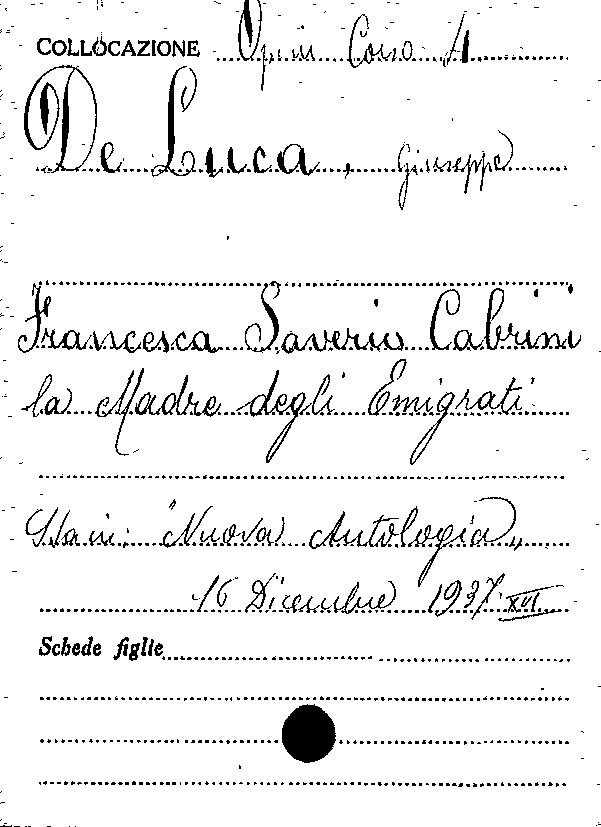 COLLOCAZIONE Opin Corso 4
De Luca, Giuseppe
Francesca Saverio Cabrini
la Madre degli Emigrati
Sta in: "Nuova Antologia„
16 Dicembre 1937. XVI
Schede figlie